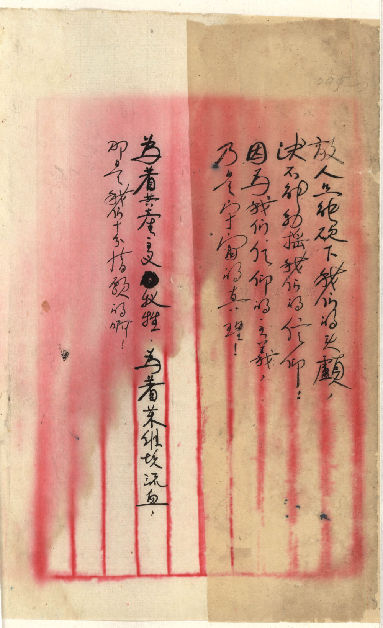 敌人只能砍下我们的头顱，
决不能動搖我们的信仰！
因为我们信仰的主義，
乃是宇宙的真理！
為着共產主义牺牲，為着苏維埃流血，
那是我们十分情願的啊！